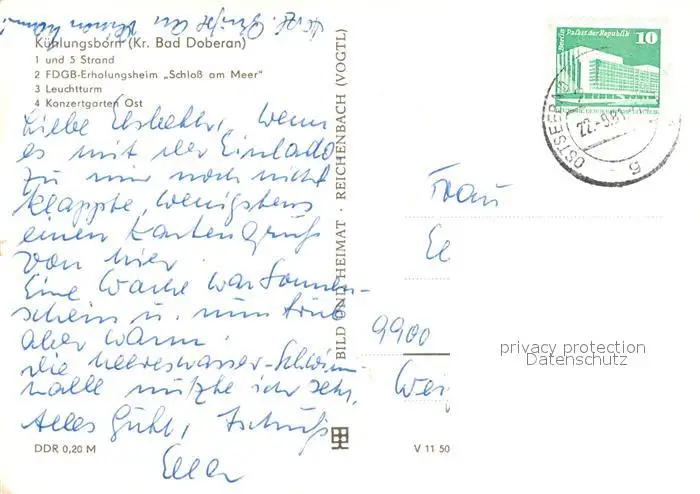 Herzl. Grüße an
Kühlungsborn (Kr. Bad Doberan)
1 und 5 Strand
2 FDGB-Erholungsheim „Schloß am Meer“
3 Leuchturm
4 Konzertgarten Ost
Liebe wenn
es mit der Einlado
zu mir noch nicht
klappte, wenigstens
einen Kartengruß
von hier.
Eine Woche war Sonnen-
schein u. nun trüb
aber warm.
Die Meereswasser-Schwimm
halle nutzte ich sehr.
Alles Gute, Tschüß
DDR 0,20 M
BILD UND HEIMAT · REICHENBACH (VOGTL)
V 11 50
Berlin Palast der Republik
10
OSTSEEBAD
22.-9.81
g
Frau
9900
privacy protection
Datenschutz